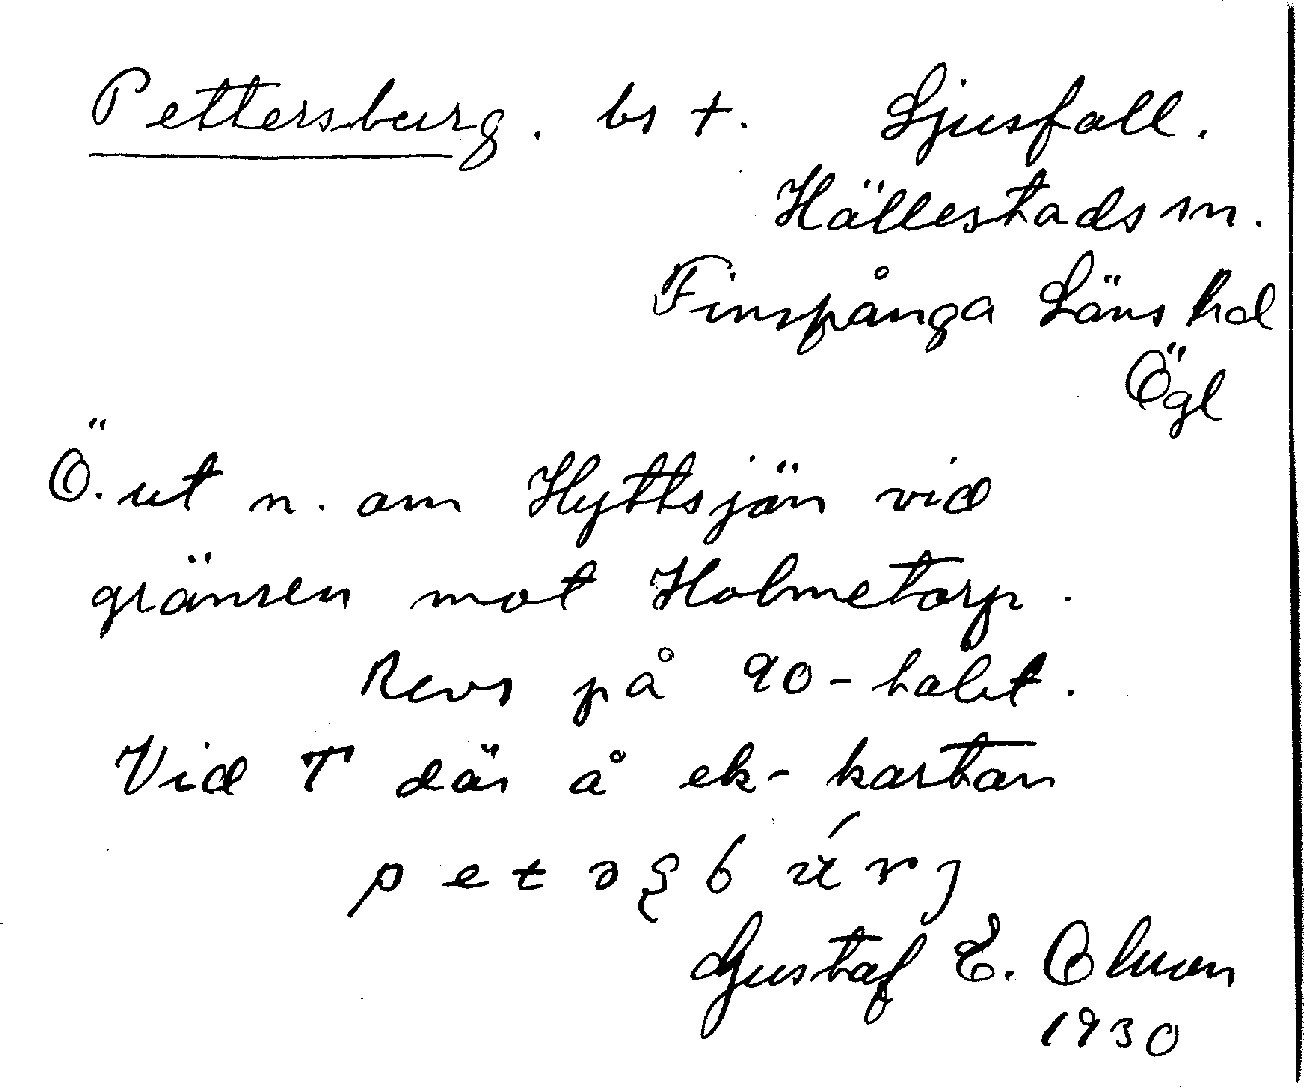 Pettersburg. bs +. Ljusfall.
Hällestads sn.
Finspånga Läns hd
Ögl
Ö. ut n. om Hyttsjön vid
gränsen mot Holmetorp.
Revs på 90-talet.
Vid T där å ek-kartan
p e t ə ʂ b ú r j
Gustaf E. Olsson
1930